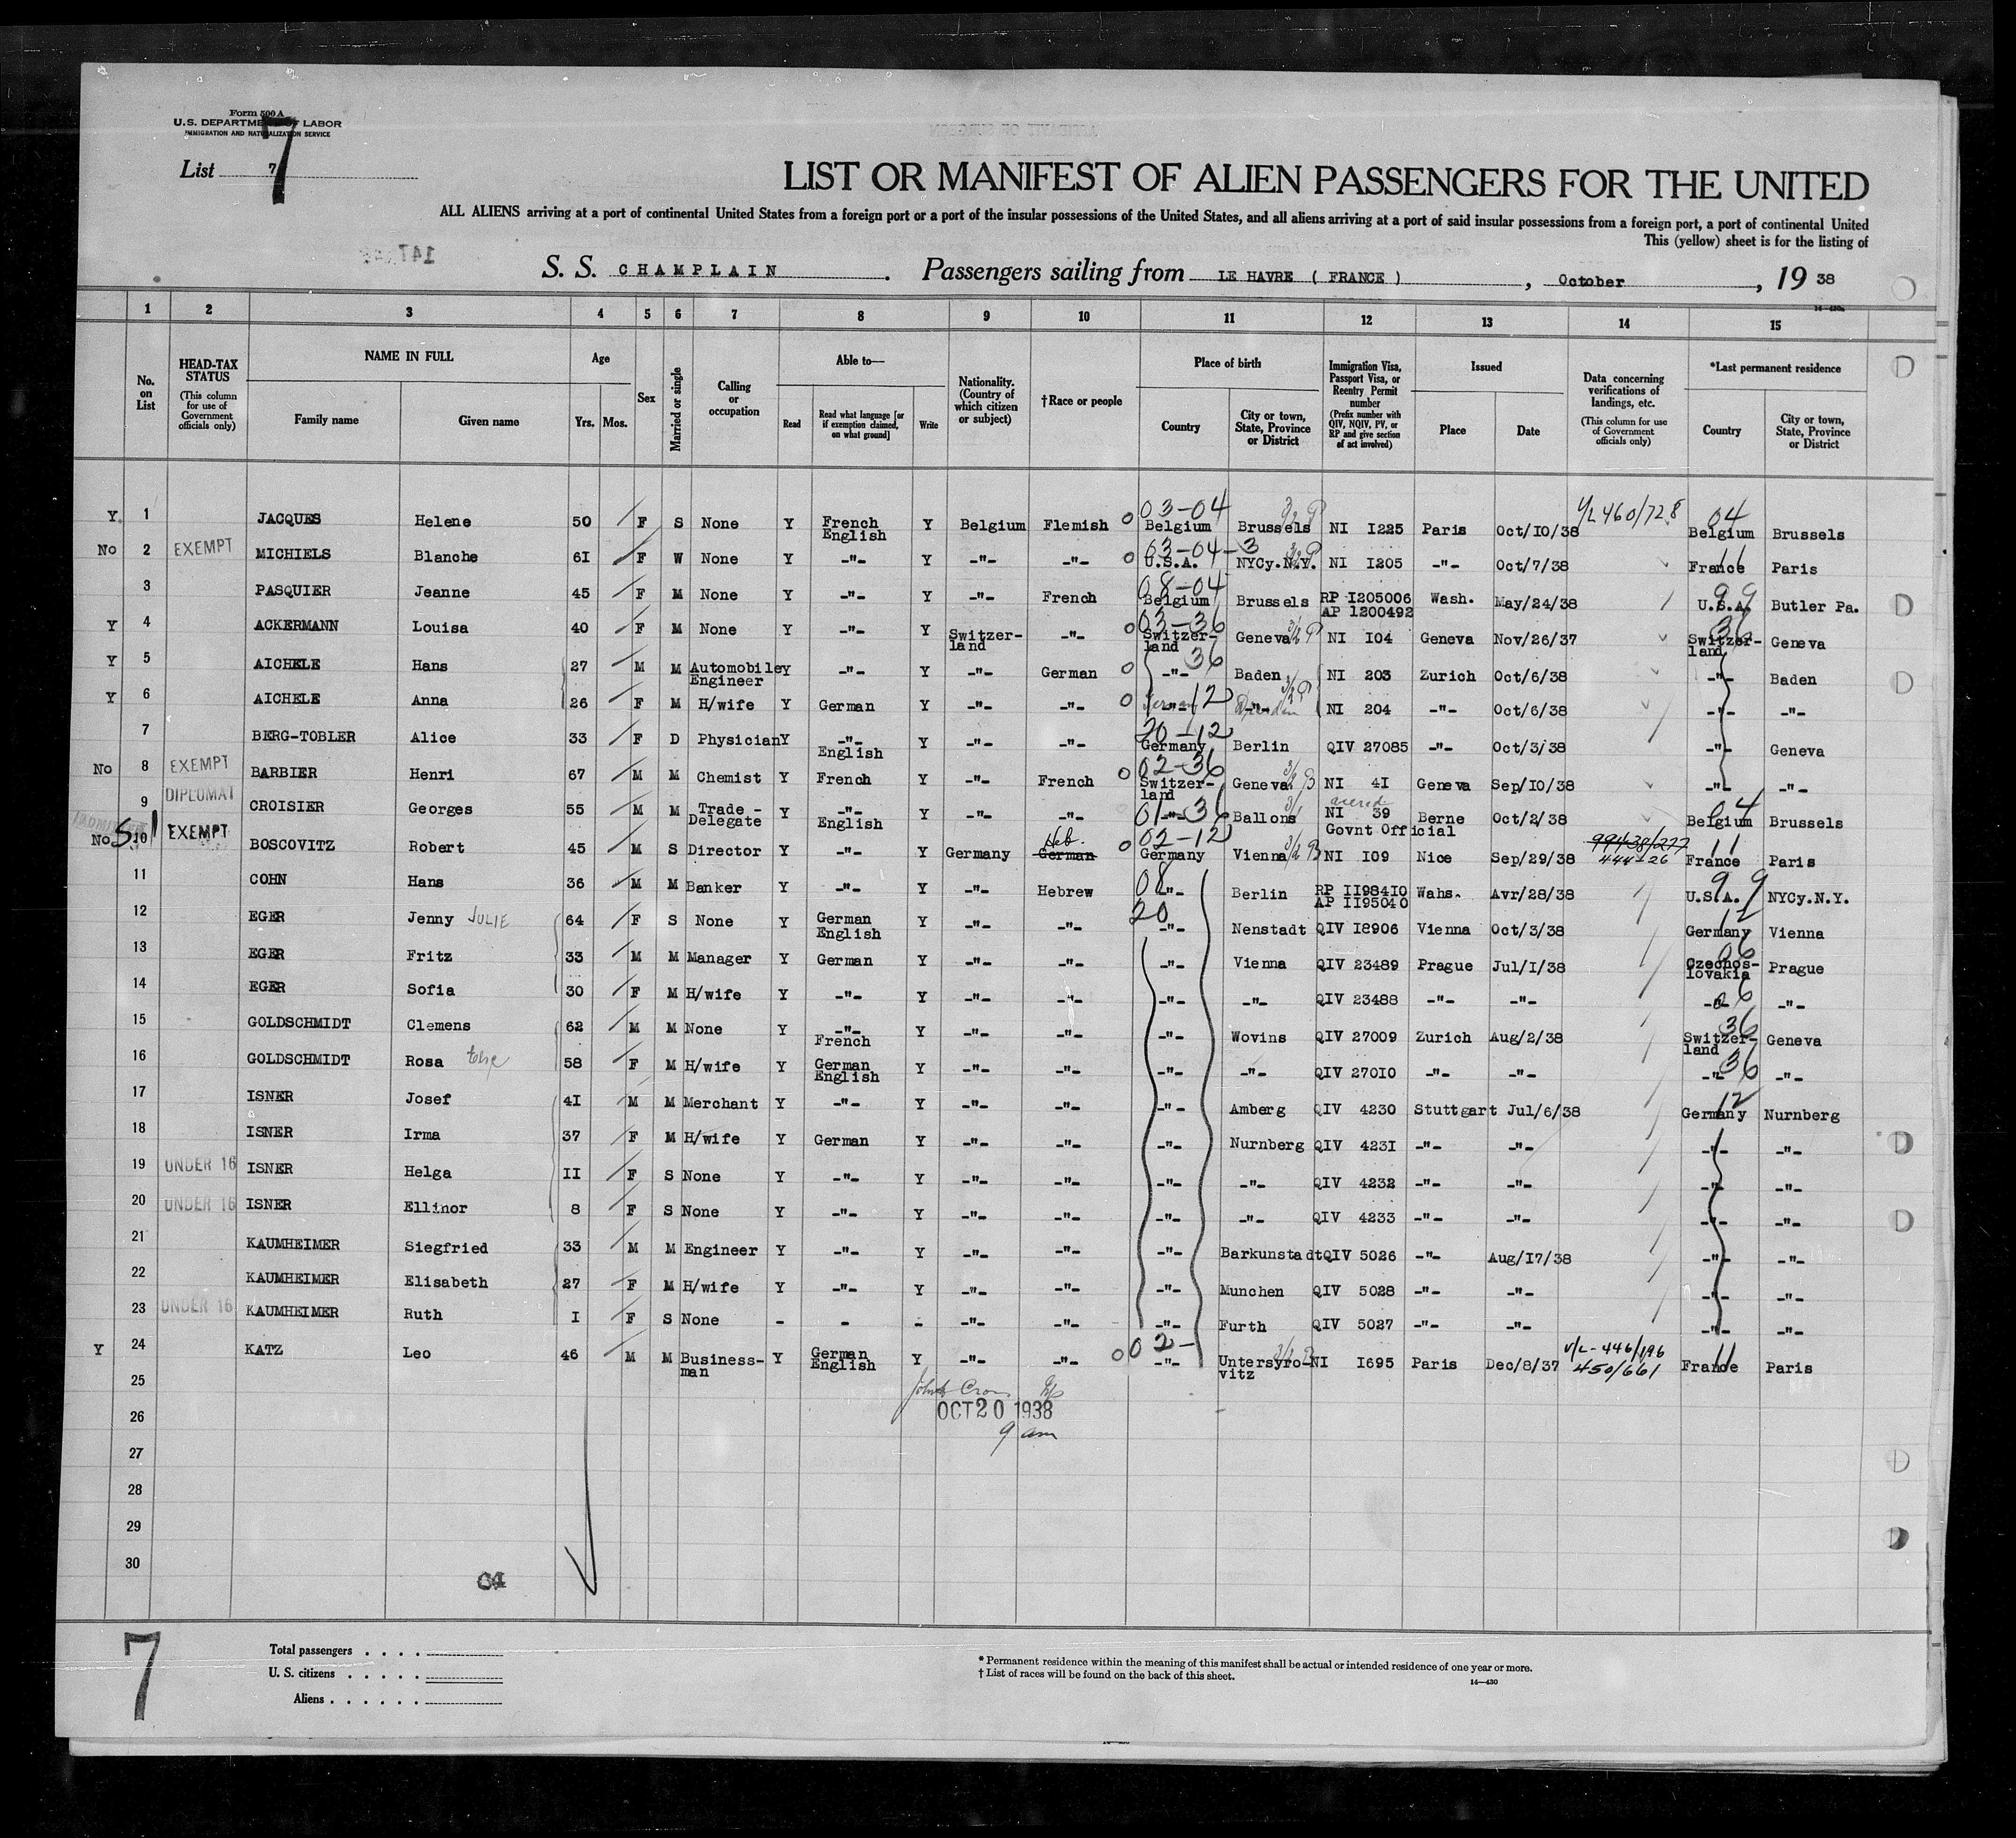 Form 500 A
U.S. DEPARTMENT OF LABOR
IMMIGRATION AND NATURALIZATION SERVICE
List 7
7
LIST OR MANIFEST OF ALIEN PASSENGERS FOR THE UNITED
ALL ALIENS arriving at a port of continental United States from a foreign port or a port of the insular possessions of the United States, and all aliens arriving at a port of said insular possessions from a foreign port, a port of continental United
This (yellow) sheet is for the listing of
S. S. CHAMPLAIN. Passengers sailing from LE HAVRE ( FRANCE ), October, 19 38
1 2 3 4 5 6 7 8 9 10 11 12 13 14 15
No. on List
HEAD-TAX STATUS (This column for use of Government officials only)
NAME IN FULL Family name Given name
Age Yrs. Mos.
Sex
Married or single
Calling or occupation
Able to— Read Read what language [or if exemption claimed, on what ground] Write
Nationality. (Country of which citizen or subject)
†Race or people
Place of birth Country City or town, State, Province or District
Immigration Visa, Passport Visa, or Reentry Permit number (Prefix number with QIV, NQIV, PV, or RP and give section of act involved)
Issued Place Date
Data concerning verifications of landings, etc. (This column for use of Government officials only)
*Last permanent residence Country City or town, State, Province or District
Y 1 JACQUES Helene 50 F S None Y French English Y Belgium Flemish 0 03-04 Belgium Brussels NI I225 Paris Oct/I0/38 V/L 460/728 04 Belgium Brussels
No 2 EXEMPT MICHIELS Blanche 6I F W None Y -"- Y -"- -"- 0 03-04-3 U.S.A. NYCy.N.Y. NI I205 -"- Oct/7/38 11 France Paris
3 PASQUIER Jeanne 45 F M None Y -"- Y -"- French 08-04 Belgium Brussels RP I205006 AP 1200492 Wash. May/24/38 99 U.S.A. Butler Pa.
Y 4 ACKERMANN Louisa 40 F M None Y -"- Y Switzer-land -"- 0 03-36 Switzer-land Geneva NI I04 Geneva Nov/26/37 36 Switzer-land Geneva
Y 5 AICHELE Hans 27 M M Automobile Engineer Y -"- Y -"- German 0 36 -"- Baden NI 203 Zurich Oct/6/38 -"- Baden
Y 6 AICHELE Anna 26 F M H/wife Y German Y -"- -"- 0 Germany 12 -"- Dresden NI 204 -"- Oct/6/38 -"- -"-
7 BERG-TOBLER Alice 33 F D Physician Y -"- English Y -"- -"- 20-12 Germany Berlin QIV 27085 -"- Oct/3/38 -"- Geneva
No 8 EXEMPT BARBIER Henri 67 M M Chemist Y French Y -"- French 0 02-36 Switzer-land Geneva NI 4I Geneva Sep/I0/38 -"- -"-
9 DIPLOMAT CROISIER Georges 55 M M Trade - Delegate Y -"- English Y -"- -"- 01-36 -"- Ballons NI 39 Govnt Official Berne Oct/2/38 04 Belgium Brussels
No 10 EXEMPT BOSCOVITZ Robert 45 M S Director Y -"- Y Germany Heb. German 0 02-12 Germany Vienna NI I09 Nice Sep/29/38 99438/277 444-26 11 France Paris
11 COHN Hans 36 M M Banker Y -"- Y -"- Hebrew 08 -"- Berlin RP II984I0 AP II95040 Wahs. Avr/28/38 99 U.S.A. NYCy.N.Y.
12 EGER Jenny JULIE 64 F S None Y German English Y -"- -"- 20 -"- Nenstadt QIV I8906 Vienna Oct/3/38 12 Germany Vienna
13 EGER Fritz 33 M M Manager Y German Y -"- -"- -"- Vienna QIV 23489 Prague Jul/I/38 06 Czechos-lovakia Prague
14 EGER Sofia 30 F M H/wife Y -"- Y -"- -"- -"- -"- QIV 23488 -"- -"- 06 -"- -"-
15 GOLDSCHMIDT Clemens 62 M M None Y -"- French Y -"- -"- -"- Wovins QIV 27009 Zurich Aug/2/38 36 Switzer-land Geneva
16 GOLDSCHMIDT Rosa 58 F M H/wife Y German English Y -"- -"- -"- -"- QIV 270I0 -"- -"- 36 -"- -"-
17 ISNER Josef 4I M M Merchant Y -"- Y -"- -"- -"- Amberg QIV 4230 Stuttgart Jul/6/38 12 Germany Nurnberg
18 ISNER Irma 37 F M H/wife Y German Y -"- -"- -"- Nurnberg QIV 423I -"- -"- -"- -"-
19 UNDER 16 ISNER Helga II F S None Y -"- Y -"- -"- -"- -"- QIV 4232 -"- -"- -"- -"-
20 UNDER 16 ISNER Ellinor 8 F S None Y -"- Y -"- -"- -"- -"- QIV 4233 -"- -"- -"- -"-
21 KAUMHEIMER Siegfried 33 M M Engineer Y -"- Y -"- -"- -"- Barkunstadt QIV 5026 -"- Aug/I7/38 -"- -"-
22 KAUMHEIMER Elisabeth 27 F M H/wife Y -"- Y -"- -"- -"- Munchen QIV 5028 -"- -"- -"- -"-
23 UNDER 16 KAUMHEIMER Ruth I F S None - - - -"- -"- -"- Furth QIV 5027 -"- -"- -"- -"-
Y 24 KATZ Leo 46 M M Business-man Y German English Y -"- -"- 0 02- -"- Untersyro-vitz NI I695 Paris Dec/8/37 V/L-446/196 450/661 11 France Paris
25
26 OCT 20 1938
9 am
27
28
29
30
04
7
Total passengers
U. S. citizens
Aliens
* Permanent residence within the meaning of this manifest shall be actual or intended residence of one year or more.
† List of races will be found on the back of this sheet.
14—430